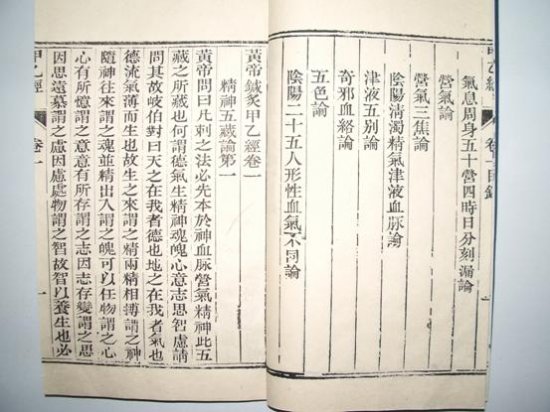 甲乙經 卷一目錄 一
氣息周身五十營四時日分刻漏論
營氣論
營氣三焦論
陰陽清濁精氣津液血脉論
津液五別論
奇邪血絡論
五色論
陰陽二十五人形性血氣不同論
黃帝鍼灸甲乙經卷一
精神五藏論第一
黃帝問曰凡刺之法必先本於神血脉營氣精神此五
藏之所藏也何謂德氣生精神魂魄心意志思智慮請
問其故岐伯對曰天之在我者德也地之在我者氣也
德流氣薄而生也故生之來謂之精兩精相搏謂之神
隨神往來謂之魂並精出入謂之魄可以任物謂之心
心有所憶謂之意意有所存謂之志因志存變謂之思
因思遠慕謂之慮因慮處物謂之智故智以養生也必
甲乙經 卷一 一